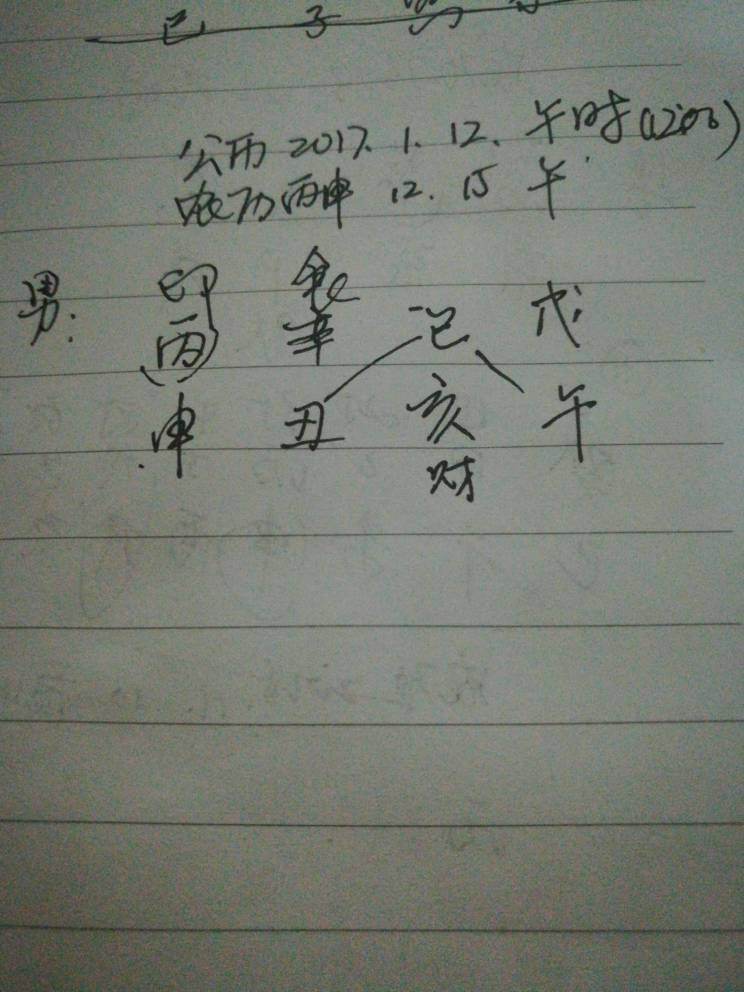 巳 子
公历 2017. 1. 12. 午时(12:00)
农历丙申 12. 15 午
男: 印 食
丙 辛 己 戊
申 丑 亥 午
财